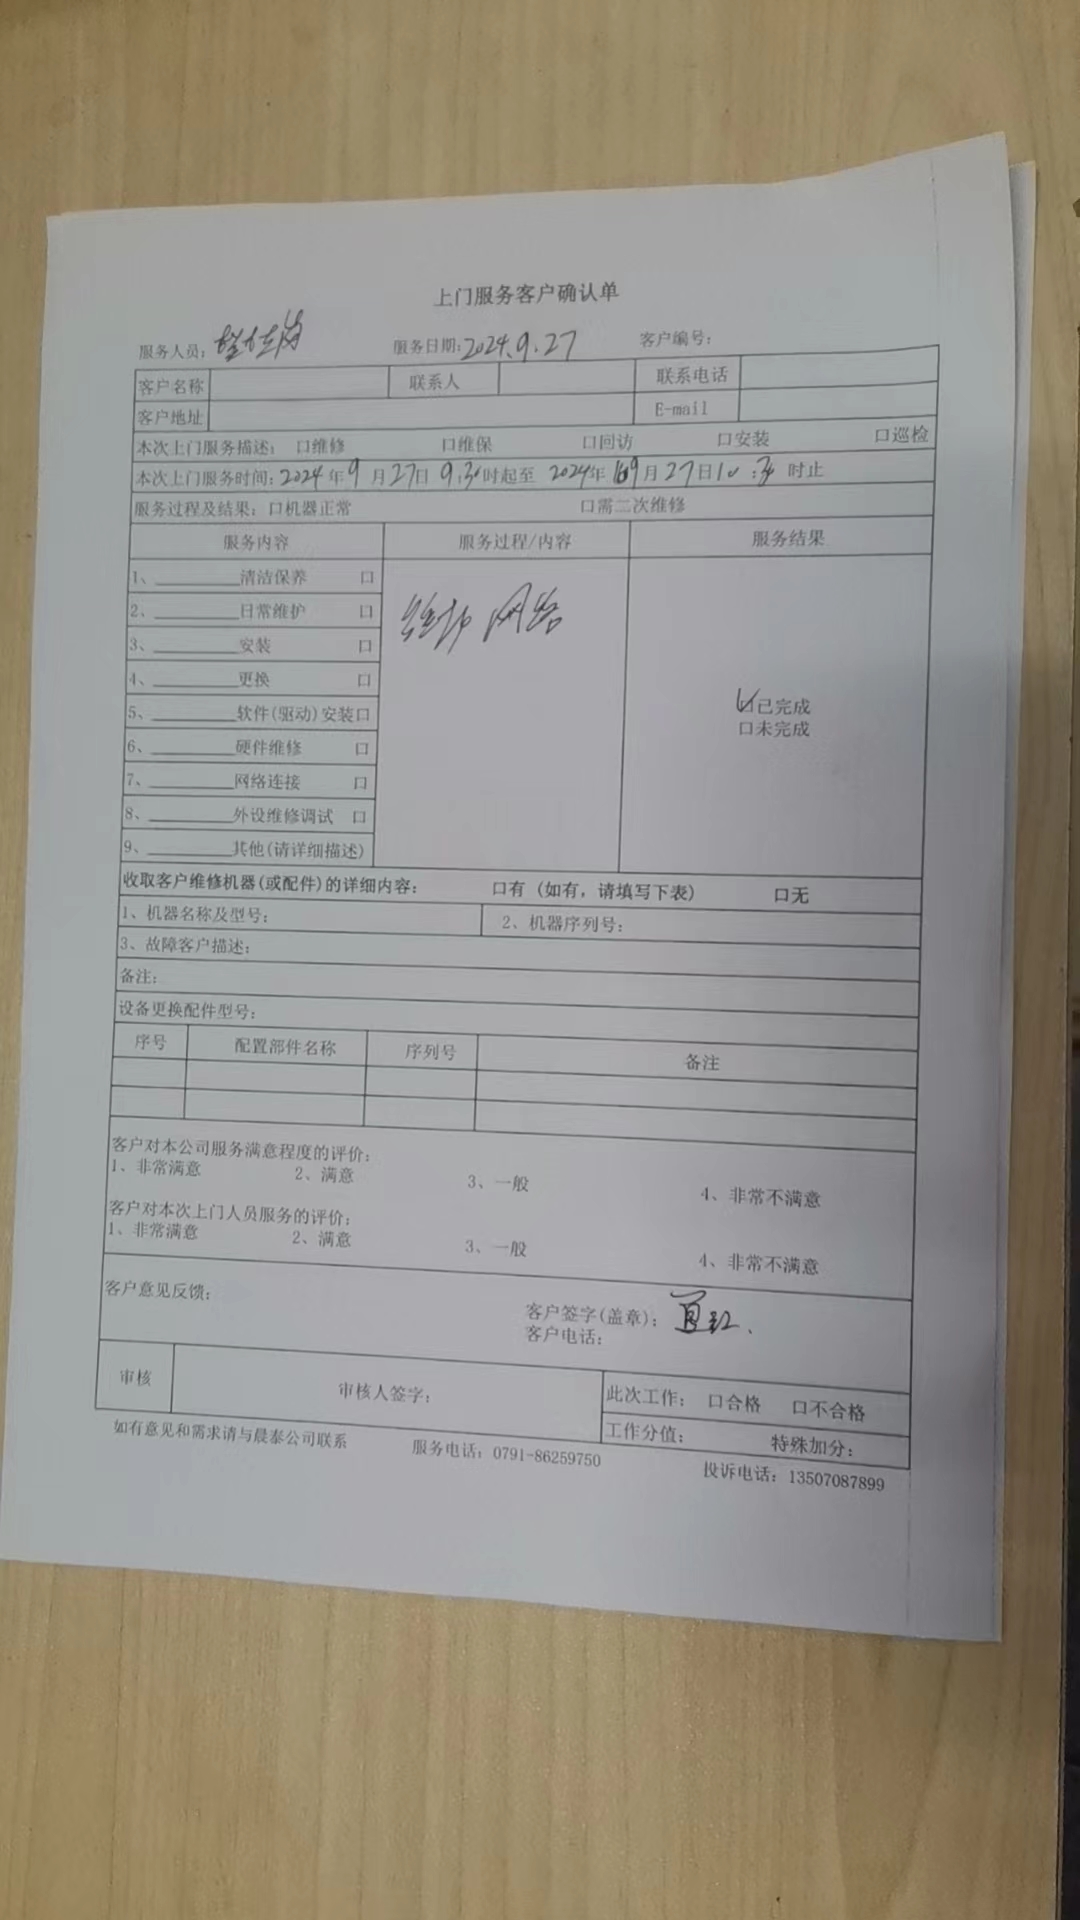 上门服务客户确认单
服务人员： 服务日期：2024.9.27 客户编号：
客户名称 联系人 联系电话
客户地址 E-mail
本次上门服务描述： 口维修 口维保 口回访 口安装 口巡检
本次上门服务时间：2024年9月27日9:30时起至 2024年9月27日10:30时止
服务过程及结果：口机器正常 口需二次维修
服务内容 服务过程/内容 服务结果
1、________清洁保养 口
2、________日常维护 口
3、________安装 口
4、________更换 口
5、________软件(驱动)安装口
6、________硬件维修 口
7、________网络连接 口
8、________外设维修调试 口
9、________其他(请详细描述)
维护网络
口已完成
口未完成
收取客户维修机器(或配件)的详细内容： 口有（如有，请填写下表） 口无
1、机器名称及型号： 2、机器序列号：
3、故障客户描述：
备注：
设备更换配件型号：
序号 配置部件名称 序列号 备注
客户对本公司服务满意程度的评价：
1、非常满意 2、满意 3、一般 4、非常不满意
客户对本次上门人员服务的评价：
1、非常满意 2、满意 3、一般 4、非常不满意
客户意见反馈：
客户签字(盖章)：
客户电话：
审核 审核人签字： 此次工作： 口合格 口不合格
工作分值： 特殊加分：
如有意见和需求请与晨泰公司联系 服务电话：0791-86259750 投诉电话：13507087899